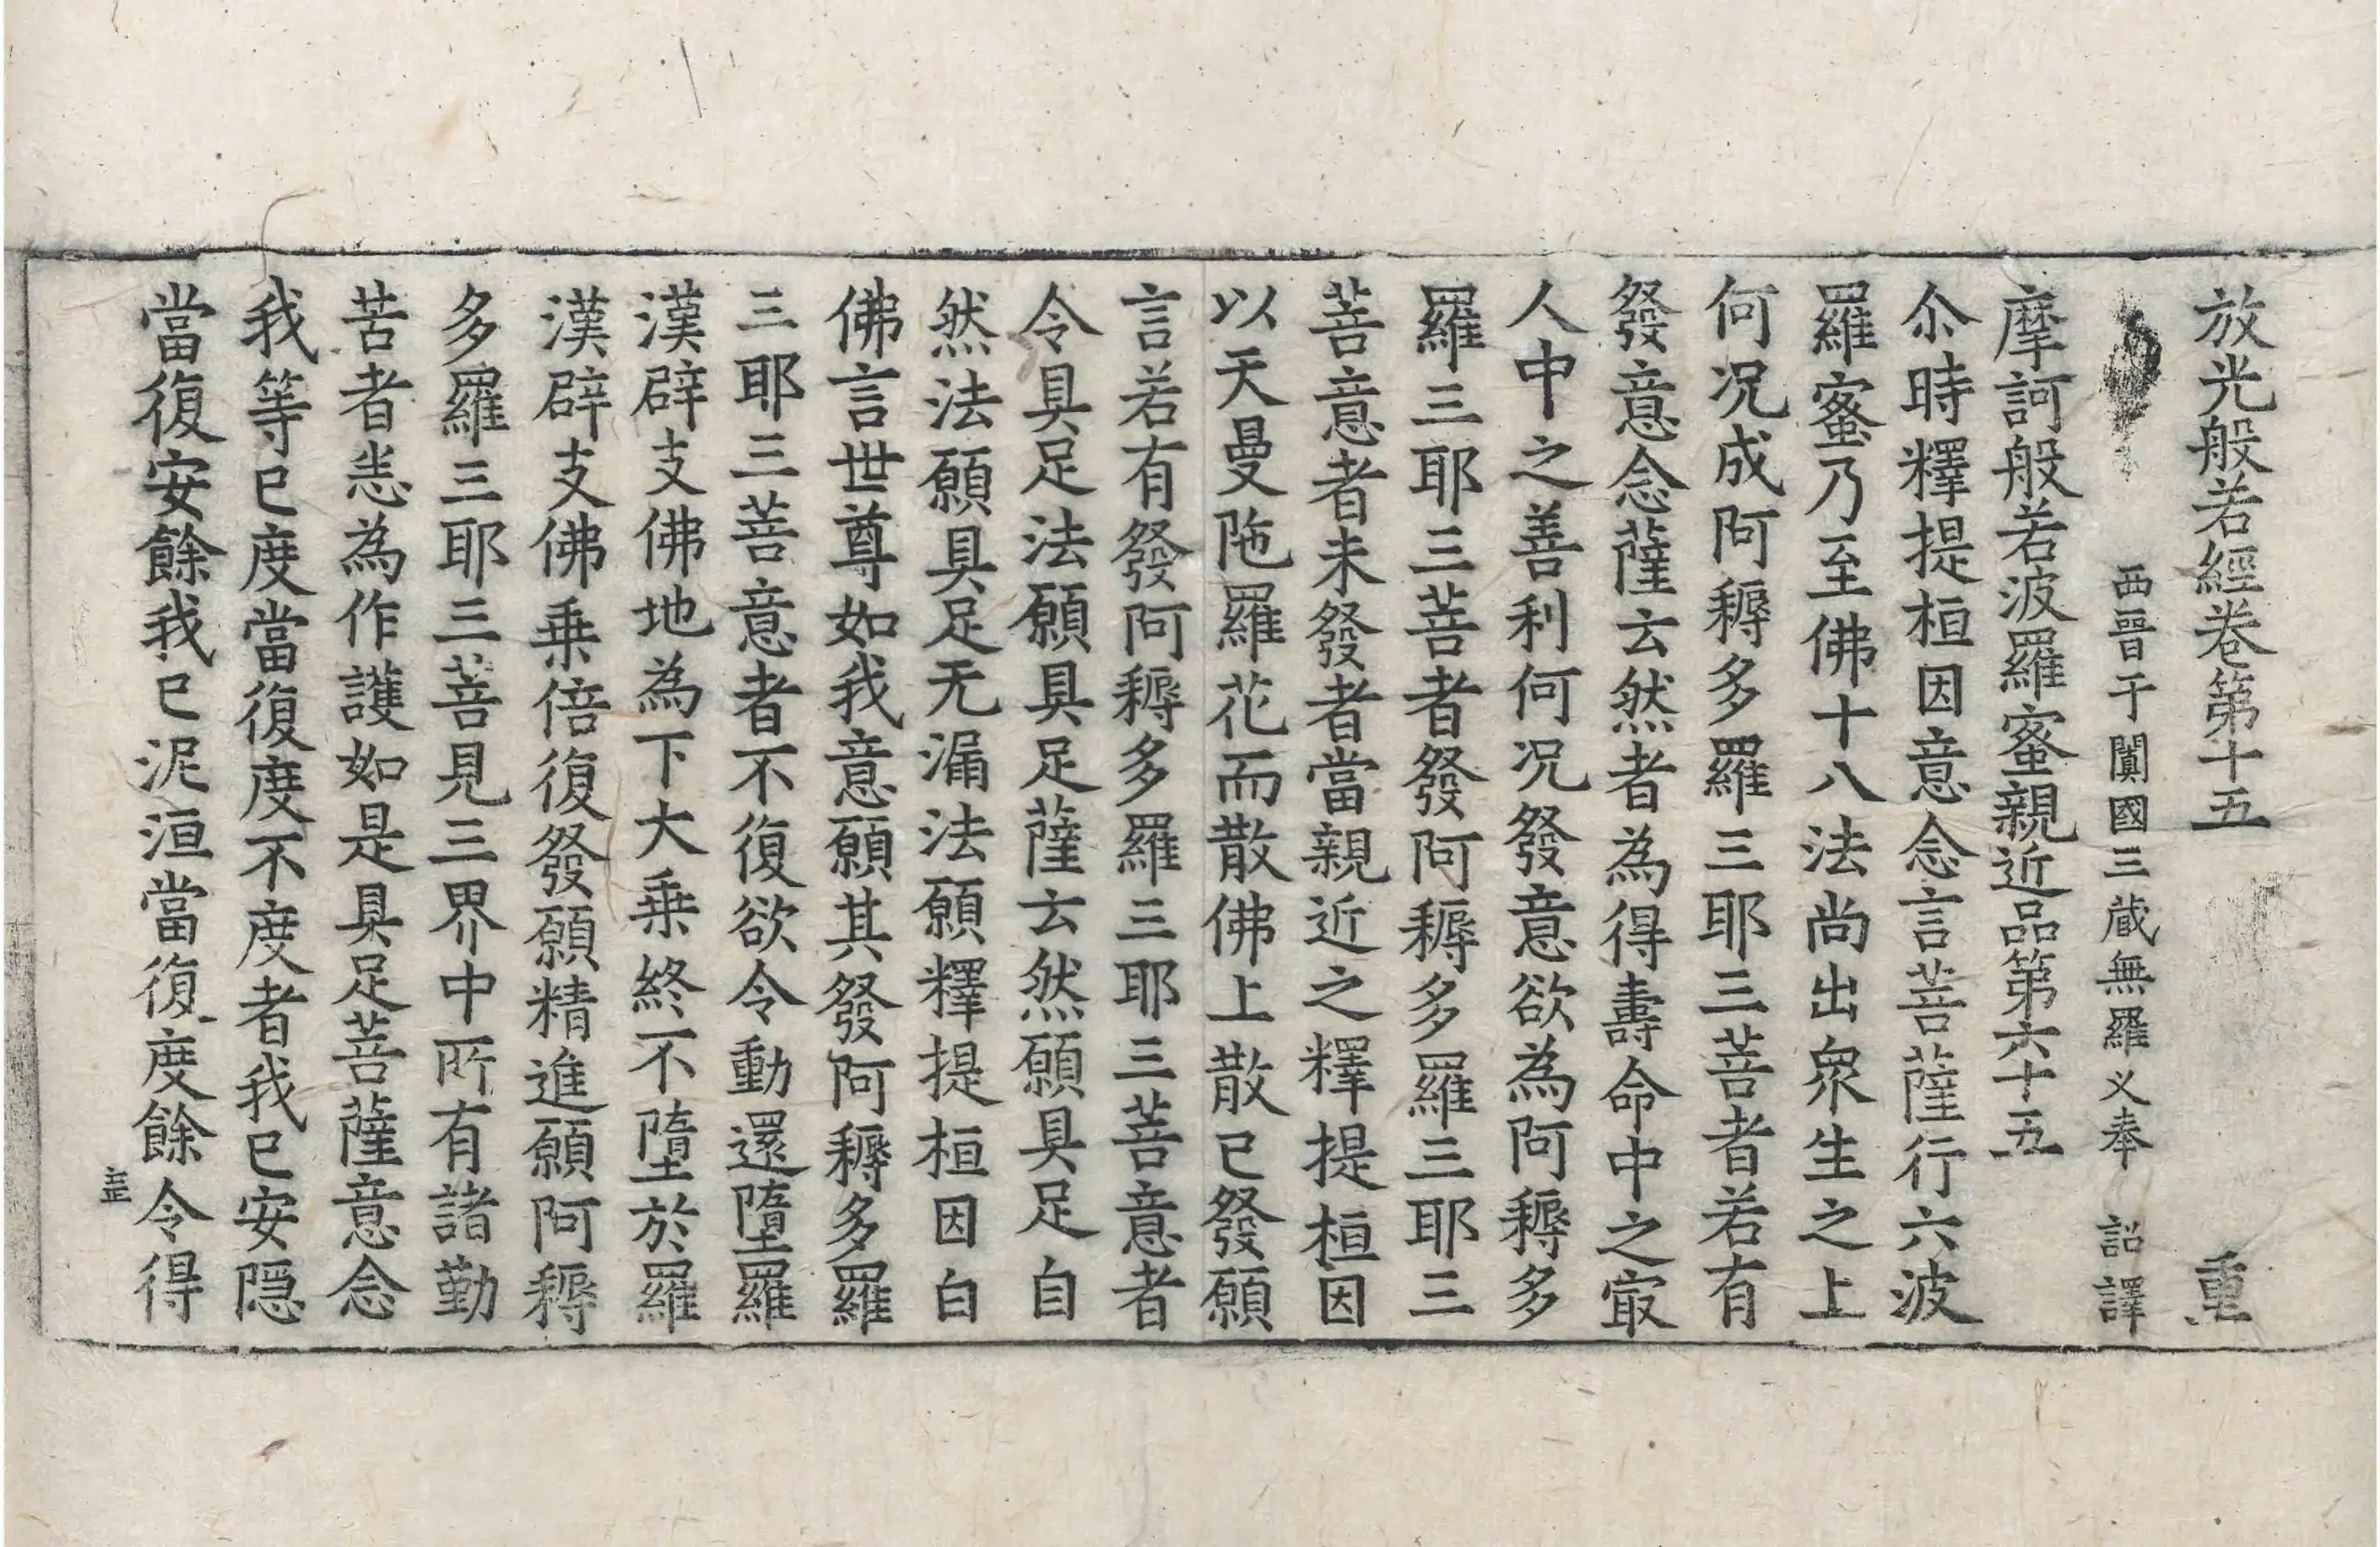 放光般若經卷第十五　重
西晉于闐國三藏無羅义奉　詔譯
摩訶般若波羅蜜親近品第六十五
尒時釋提桓因意念言菩薩行六波
羅蜜乃至佛十八法尚出衆生之上
何况成阿耨多羅三耶三菩者若有
發意念薩云然者為得壽命中之㝡
人中之善利何况發意欲為阿耨多
羅三耶三菩者發阿耨多羅三耶三
菩意者未發者當親近之釋提桓因
以天曼陁羅花而散佛上散已發願
言若有發阿耨多羅三耶三菩意者
令具足法願具足薩云然願具足自
然法願具足无漏法願釋提桓因白
佛言世尊如我意願其發阿耨多羅
三耶三菩意者不復欲令動還墮羅
漢辟支佛地為下大乗終不墮於羅
漢辟支佛乗倍復發願精進願阿耨
多羅三耶三菩見三界中所有諸勤
苦者恙為作護如是具足菩薩意念
我等已度當復度不度者我已安隠
當復安餘我已泥洹當復度餘令得